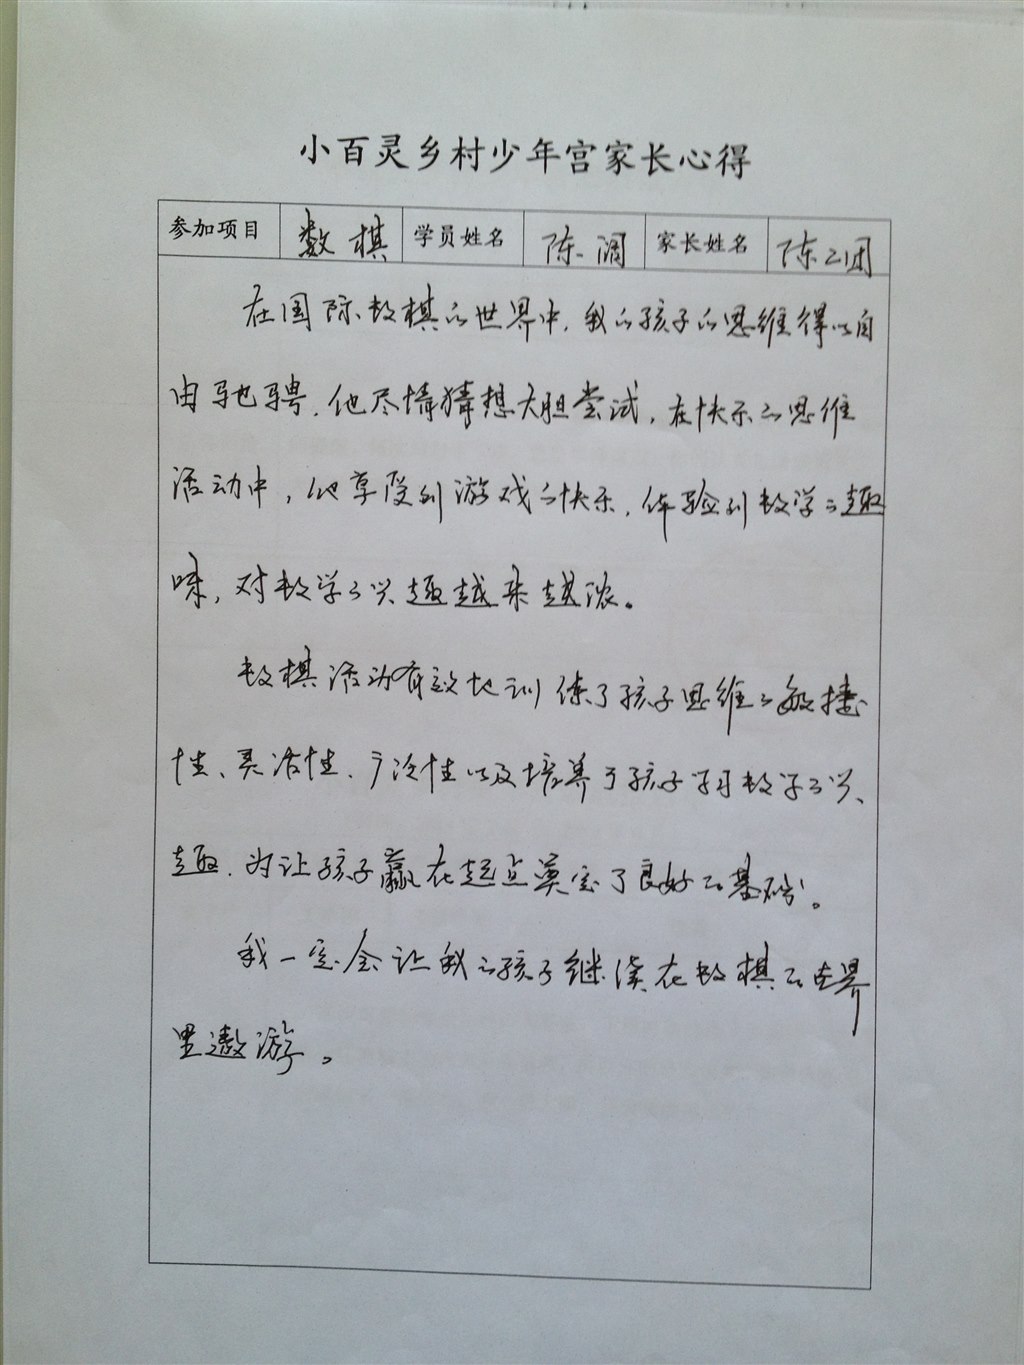 小百灵乡村少年宫家长心得
参加项目 数棋 学员姓名 陈阔 家长姓名 陈团
在国际数棋的世界中，我的孩子的思维得以自
由驰骋，他尽情猜想大胆尝试，在快乐的思维
活动中，他享受到游戏的快乐，体验到数学的趣
味，对数学的兴趣越来越浓。
数棋活动有效地训练了孩子思维的敏捷
性、灵活性、广泛性以及培养了孩子学习数学的兴
趣，为让孩子赢在起点奠定了良好的基础。
我一定会让我的孩子继续在数棋的世界
里遨游。